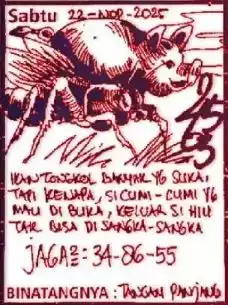 Sabtu 22-NOP-2025
45
63
IKAN TONGKOL BANYAK YG SUKA.
TAPI KENAPA, SI CUMI-CUMI YG
MAU DI BUKA, KELUAR SI HIU
TAK BISA DI SANGKA-SANGKA
JAGA²: 34-86-55
BINATANGNYA: TANGAN PANJANG